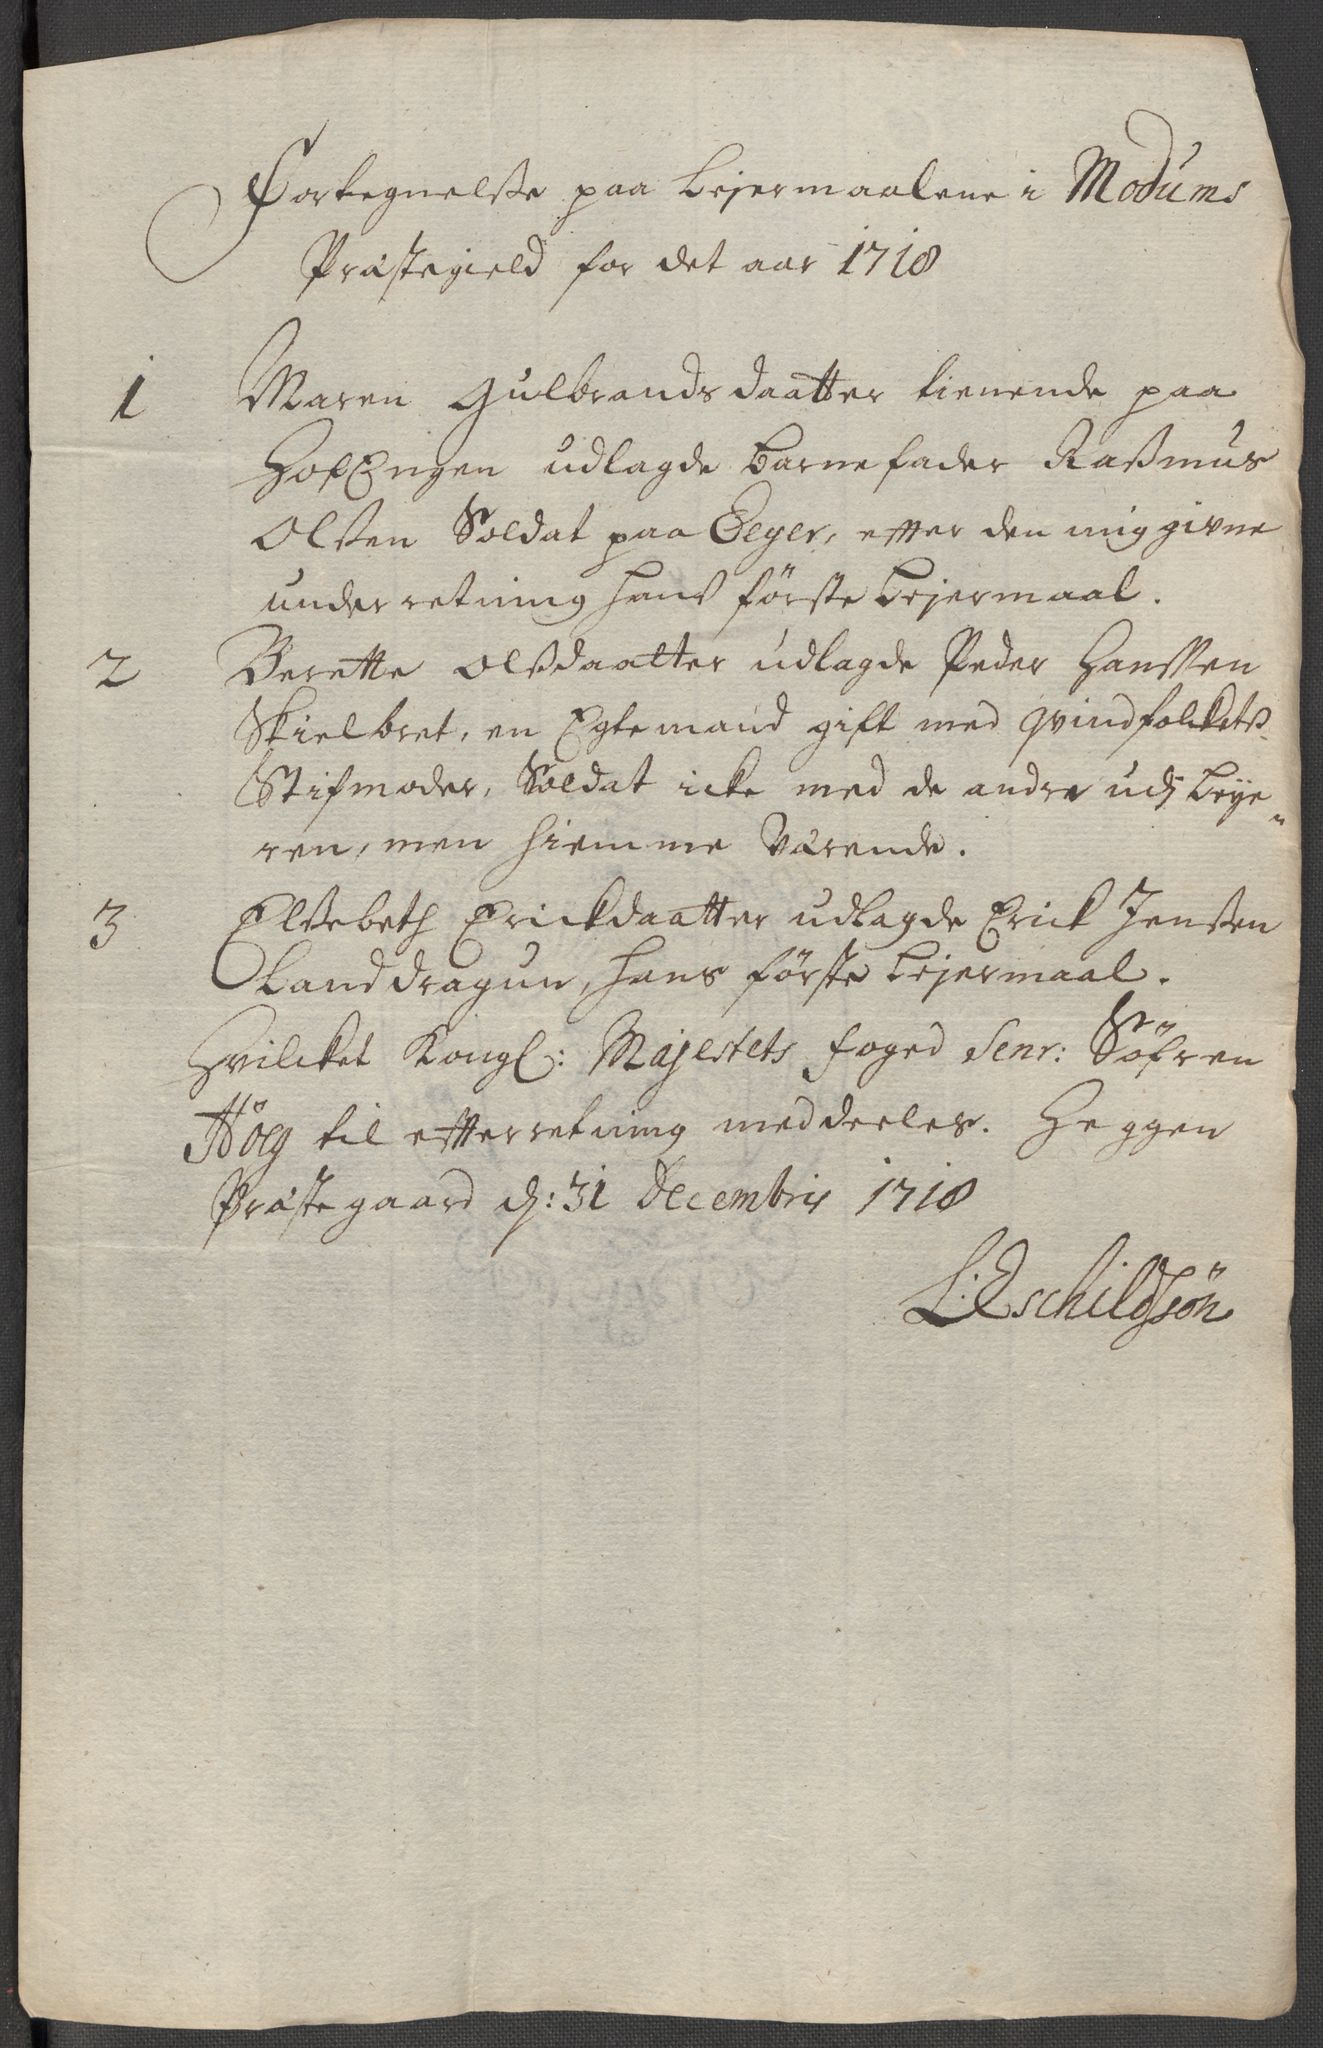 Fortegnelße paa Lejermaalene i Modums
Præstegield for det aar 1718
1 Maren Gulbrandsdaatter tienende paa
HofEngen udlagde Barnefader Raßmus
Olßen Soldat paa Eeger, efter den mig givne
underretning hans förste Lejermaal.
2 Berette Olßdaatter udlagde Peder Hanßen
Skielbret, en Egtemand gift med qvindfolcketß
Stifmoder, Soldat icke med de andre udj Leye
ren, men hiemme værende.
3 Elßebeth Erickdaatter udlagde Erick Jenßen
Landdragun, hans förste Lejermaal.
Hvilcket Kongl: Majestets foged Senr: Söfren
Höeg til efterretning meddeeles. Heggen
Præstegaard d: 31 Decembris 1718
L: Eschildsön